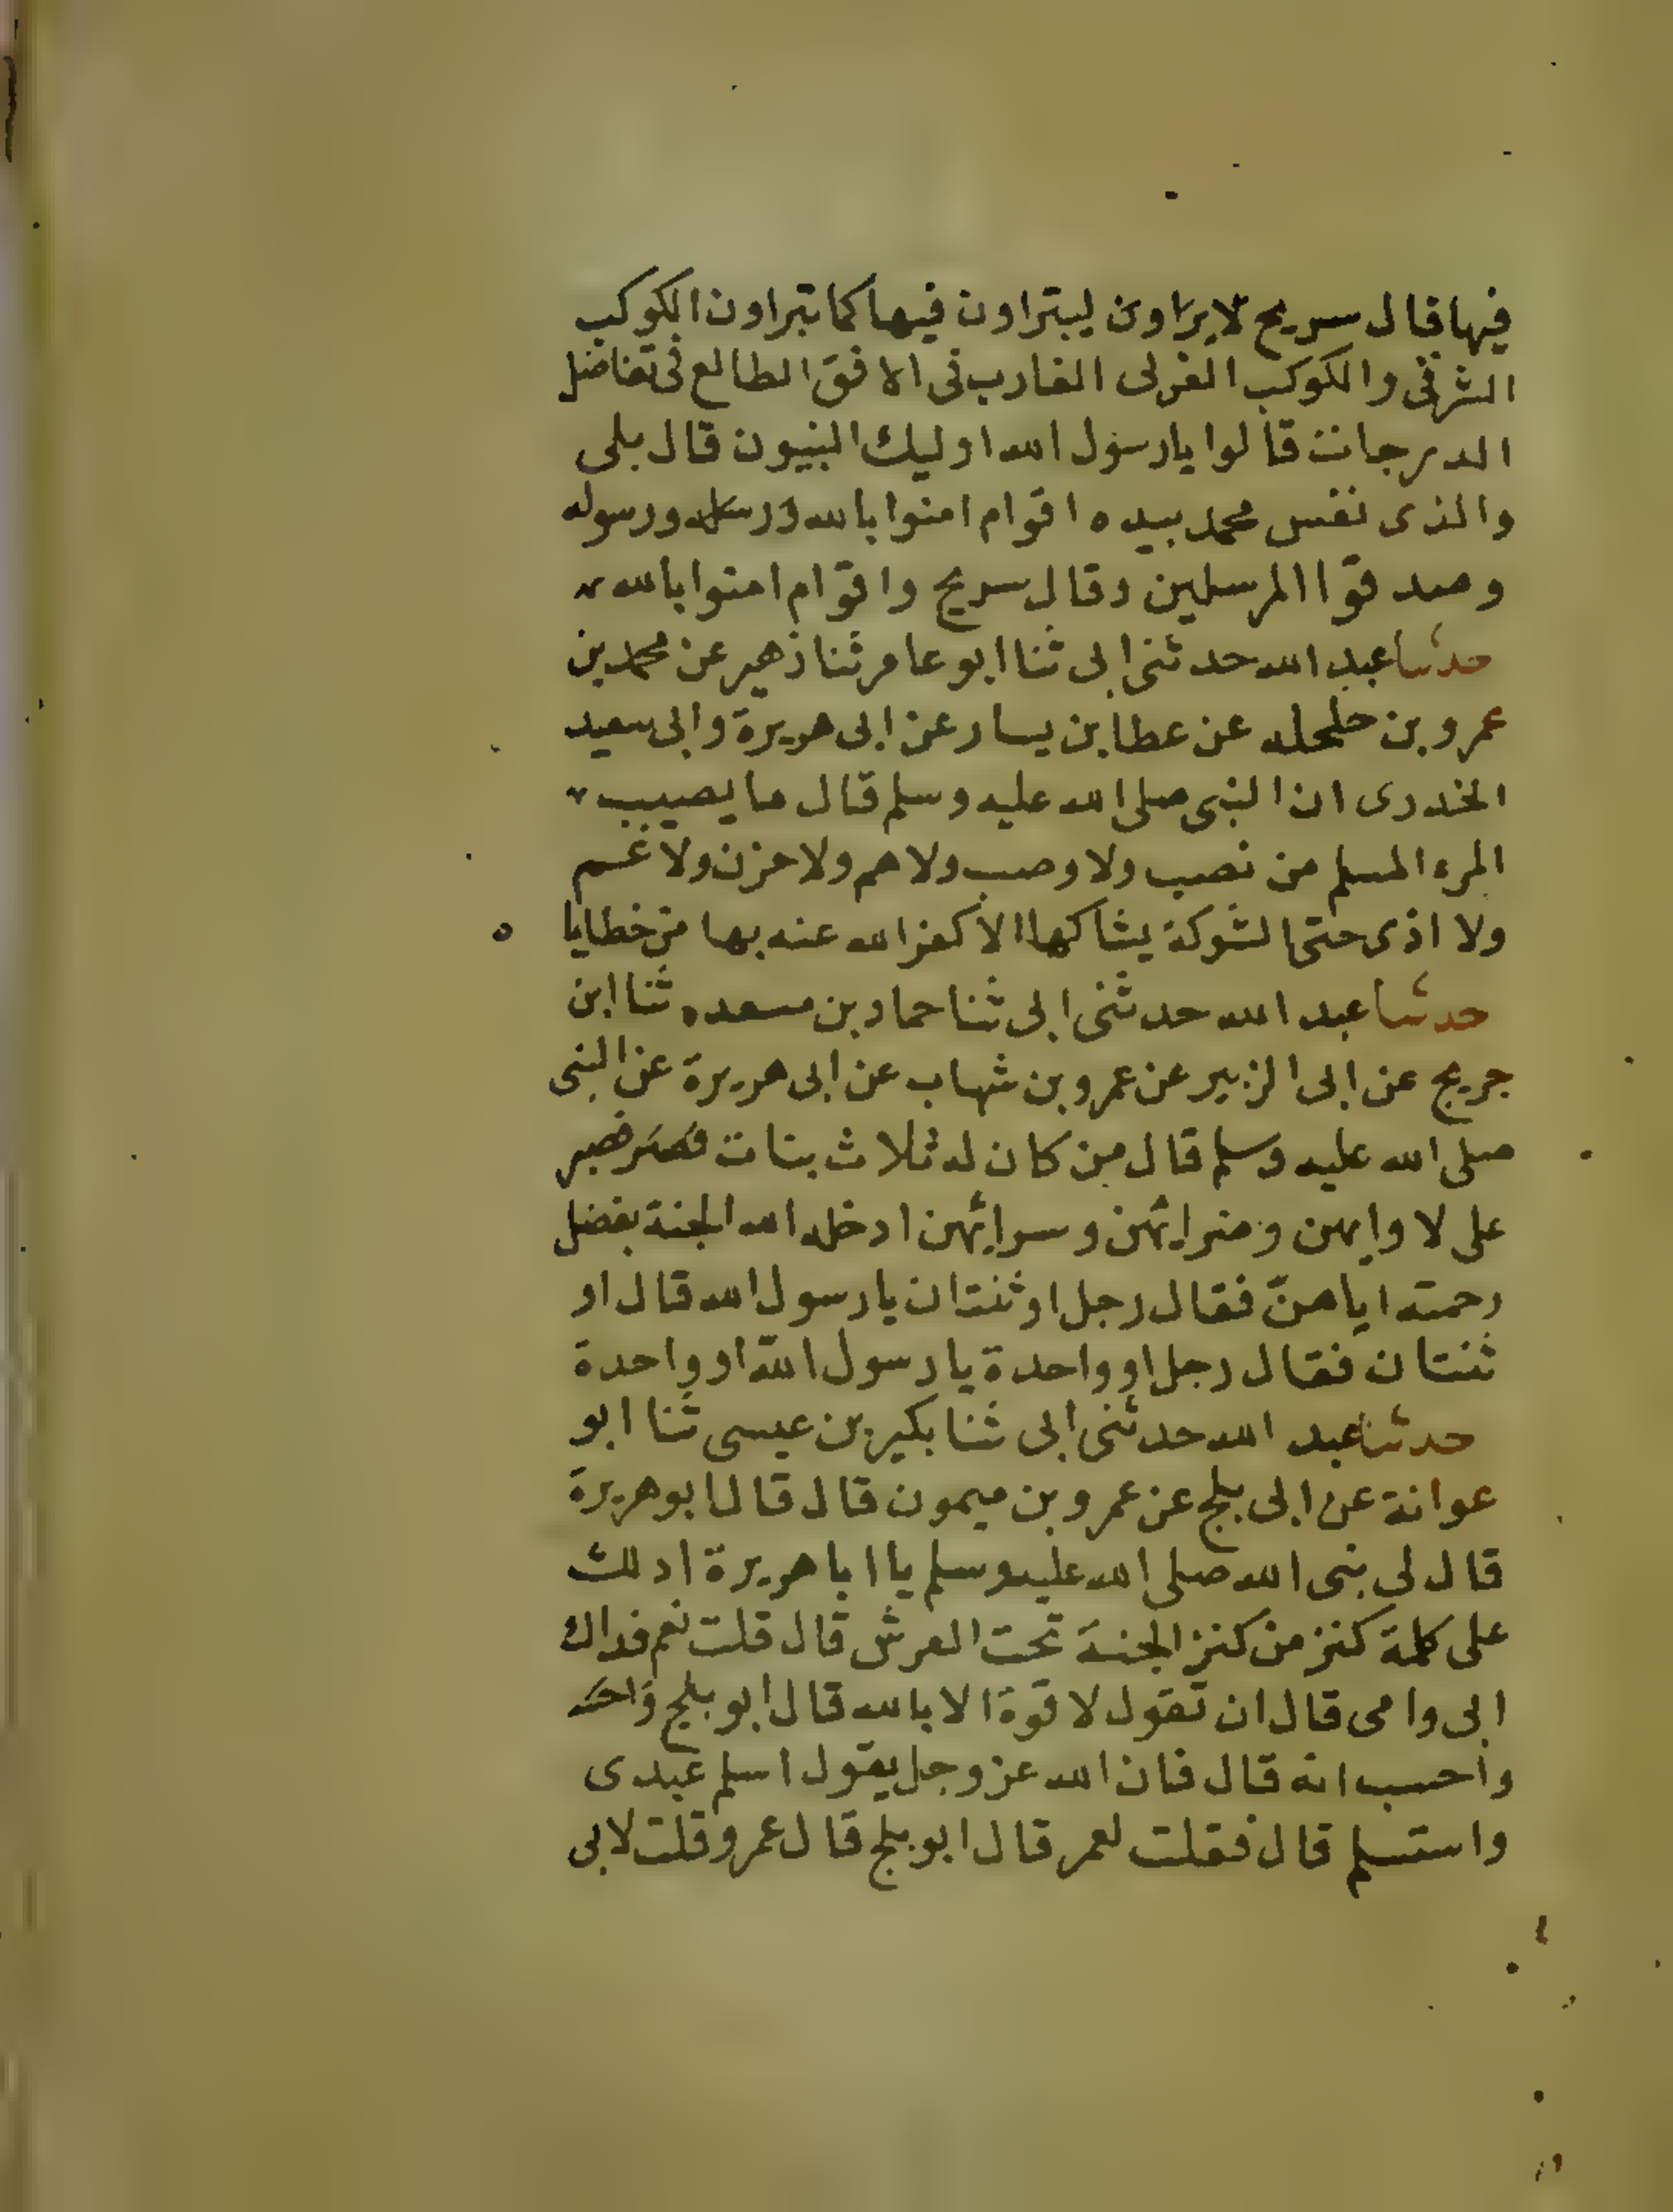 فيها قال سريج لايراون ليتراون فيها كما تراون الكوكب
الشرقى والكوكب الغربى الغارب فى الافق الطالع فى تفاضل
الدرجات قالوا يا رسول الله اوليك النبيون قال بلى
والذى نفس محمد بيده اقوام امنوا بالله ورسله ورسوله
وصدقوا المرسلين وقال سريج واقوام امنوا بالله
حدثنا عبد الله حدثنى ابى ثنا ابو عامر ثنا زهير عن محمد بن
عمرو بن حلحله عن عطا بن يسار عن ابى هريرة وابى سعيد
الخدرى ان النبى صلى الله عليه وسلم قال ما يصيب
المرء المسلم من نصب ولا وصب ولا هم ولا حزن ولا غم
ولا اذى حتى الشوكة يشاكها الا كفر الله عنه بها من خطايا ه
حدثنا عبد الله حدثنى ابى ثنا حماد بن مسعده ثنا ابن
جريج عن ابى الزبير عن عمرو بن شهاب عن ابى هريرة عن النبى
صلى الله عليه وسلم قال من كان له ثلاث بنات فصبر
على لاوايهن وضرائهن وسرائهن ادخله الله الجنة بفضل
رحمته اياهنّ فقال رجل او ثنتان يا رسول الله قال او
ثنتان فقال رجل او واحدة يا رسول الله او واحدة
حدثنا عبد الله حدثنى ابى ثنا بكير بن عيسى ثنا ابو
عوانة عن ابى بلج عن عمرو بن ميمون قال قال ابو هريرة
قال لى نبى الله صلى الله عليه وسلم يا ابا هريرة ادلك
على كلمة كنز من كنز الجنة تحت العرش قال قلت نعم فداك
ابى وامى قال ان تقول لا قوة الا بالله قال ابو بلج
واحسب انه قال فان الله عز وجل يقول اسلم عبدى
واستسلم قال فقلت لعمر قال ابو بلج قال عمرو قلت لابى